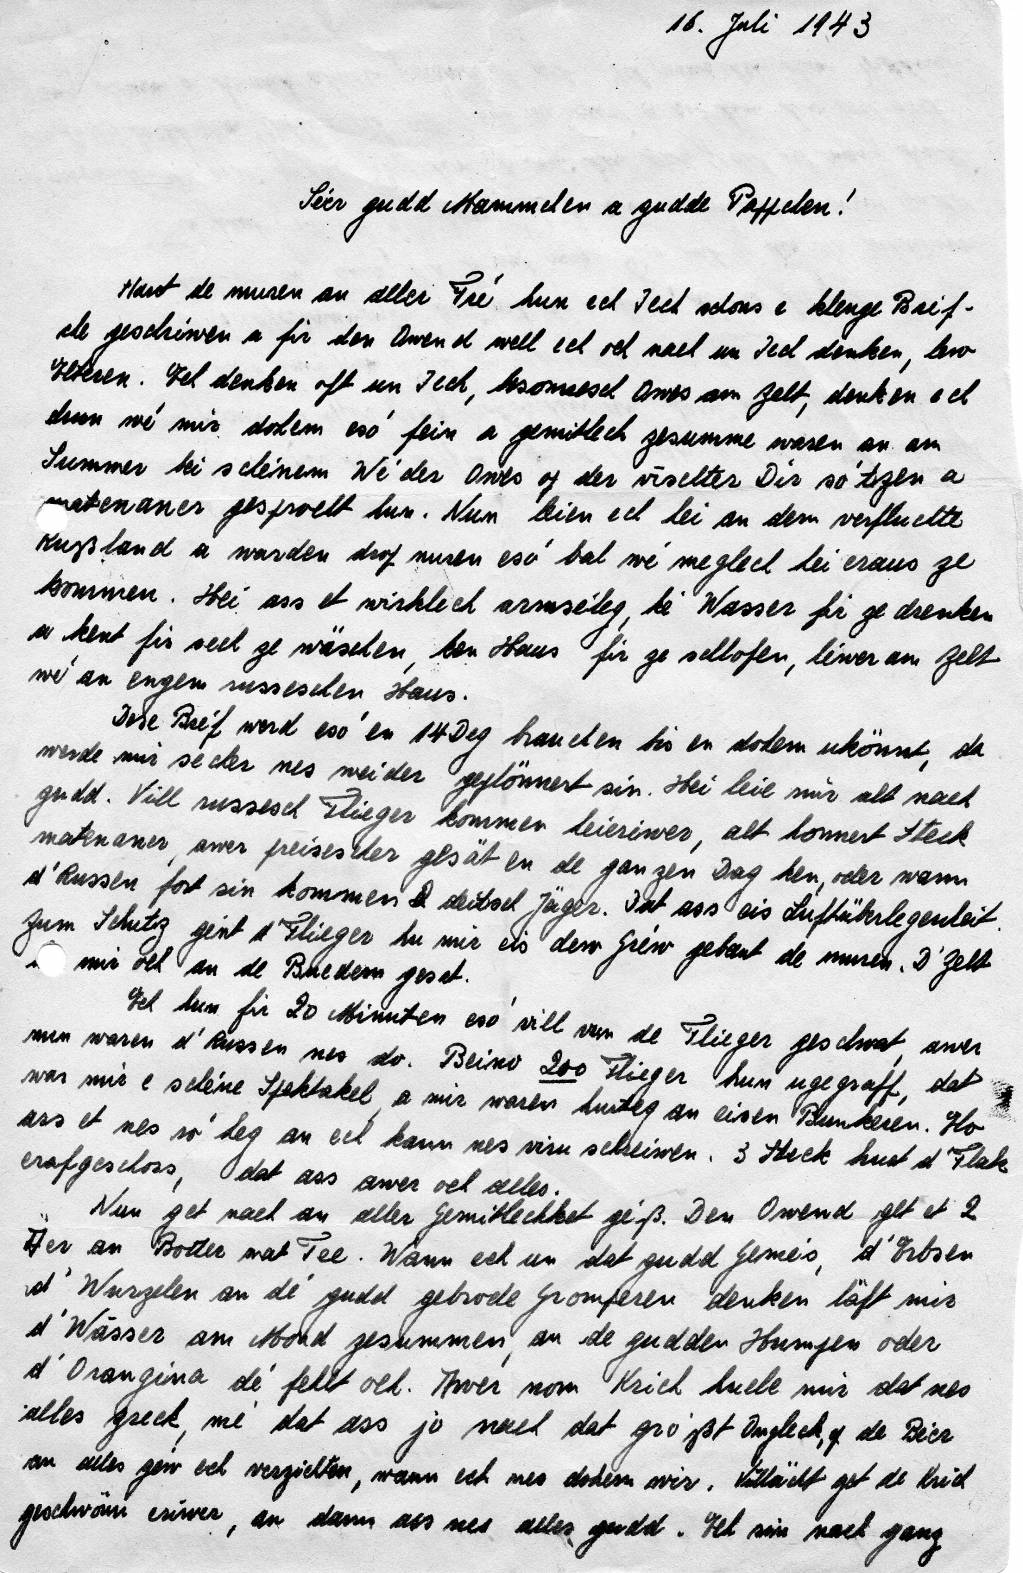 16. Juli 1943
Léer gudd Mammchen a gudde Pappchen!
Haut de muren an aller Fré hun ech Iech schons e klenge Bréif-
che geschriwen a fir den Owend well ech och nach un Iech denken, léw
Elteren. Ech denken oft un Iech, besonnesch Owes am Zelt, denken ech
drun wé mir dohem esó fein a gemitlech zesumme waren an am
Summer bei schéinem Wéder Owes op der viischter Dir sótzen a
matenaner gesproch hun. Nun leien ech hei an dem verfluchte
Rußland a warden drop muren esó bal wé méglech hei eraus ze
kommen. Hei ass et wirklech armséleg, ké Wasser fir ze drenken
a kent fir sech ze wäschen, ken Haus fir ze schlofen, léwer am Zelt
wé an engem russeschen Haus.
Dése Bréf werd esó en 14 Deg brauchen bis en dohem ukönnt, da
werde mir secher nes weider geplönnert sin. Hei leie mir alt nach
gudd. Vill russesch Flieger kommen heieriwer, alt honnert Steck
matenaner, awer preisescher gesät en de ganzen Dag ken, oder wann
d'Russen fort sin kommen 2 deitsch Jäger. Dat ass eis Luftüberlegenheit.
Zum Schutz gént d'Flieger hu mir eis dew Gréw gebaut de muren. D'Zelt
mir och an de Buedem gesat.
Ech hun fir 20 Minuten esó vill vun de Flieger geschwat, awer
nun waren d'Russen nes do. Beino 200 Flieger hun ugegraff, dat
war mir e schéine Spektakel, a mir waren hurteg an eisen Bunkeren. Elo
ass et nes róheg an ech kann nes viru schreiwen. 3 Steck huet d'Flak
erafgeschoss, dat ass awer och alles.
Nun get nach an aller Gemitlechket géß. Den Owend get et 2
Eer an Botter mat Tee. Wann ech un dat gudd Geméis, d'Erbsen
d'Wurzelen an dé gudd gebrode Gromperen denken läft mir
d'Wässer am Mond zesummen, an de gudden Humpen oder
d'Orangina dé fehlt och. Awer nom Krich huele mir dat nes
alles zreck, mé dat ass jo nach dat größt Ongleck, op de Béer
an alles géw ech verzichten, wann ech nes dohem wir. Villächt get de Krich
geschwënn eriwer, an dann ass nes alles gudd. Ech sin nach ganz